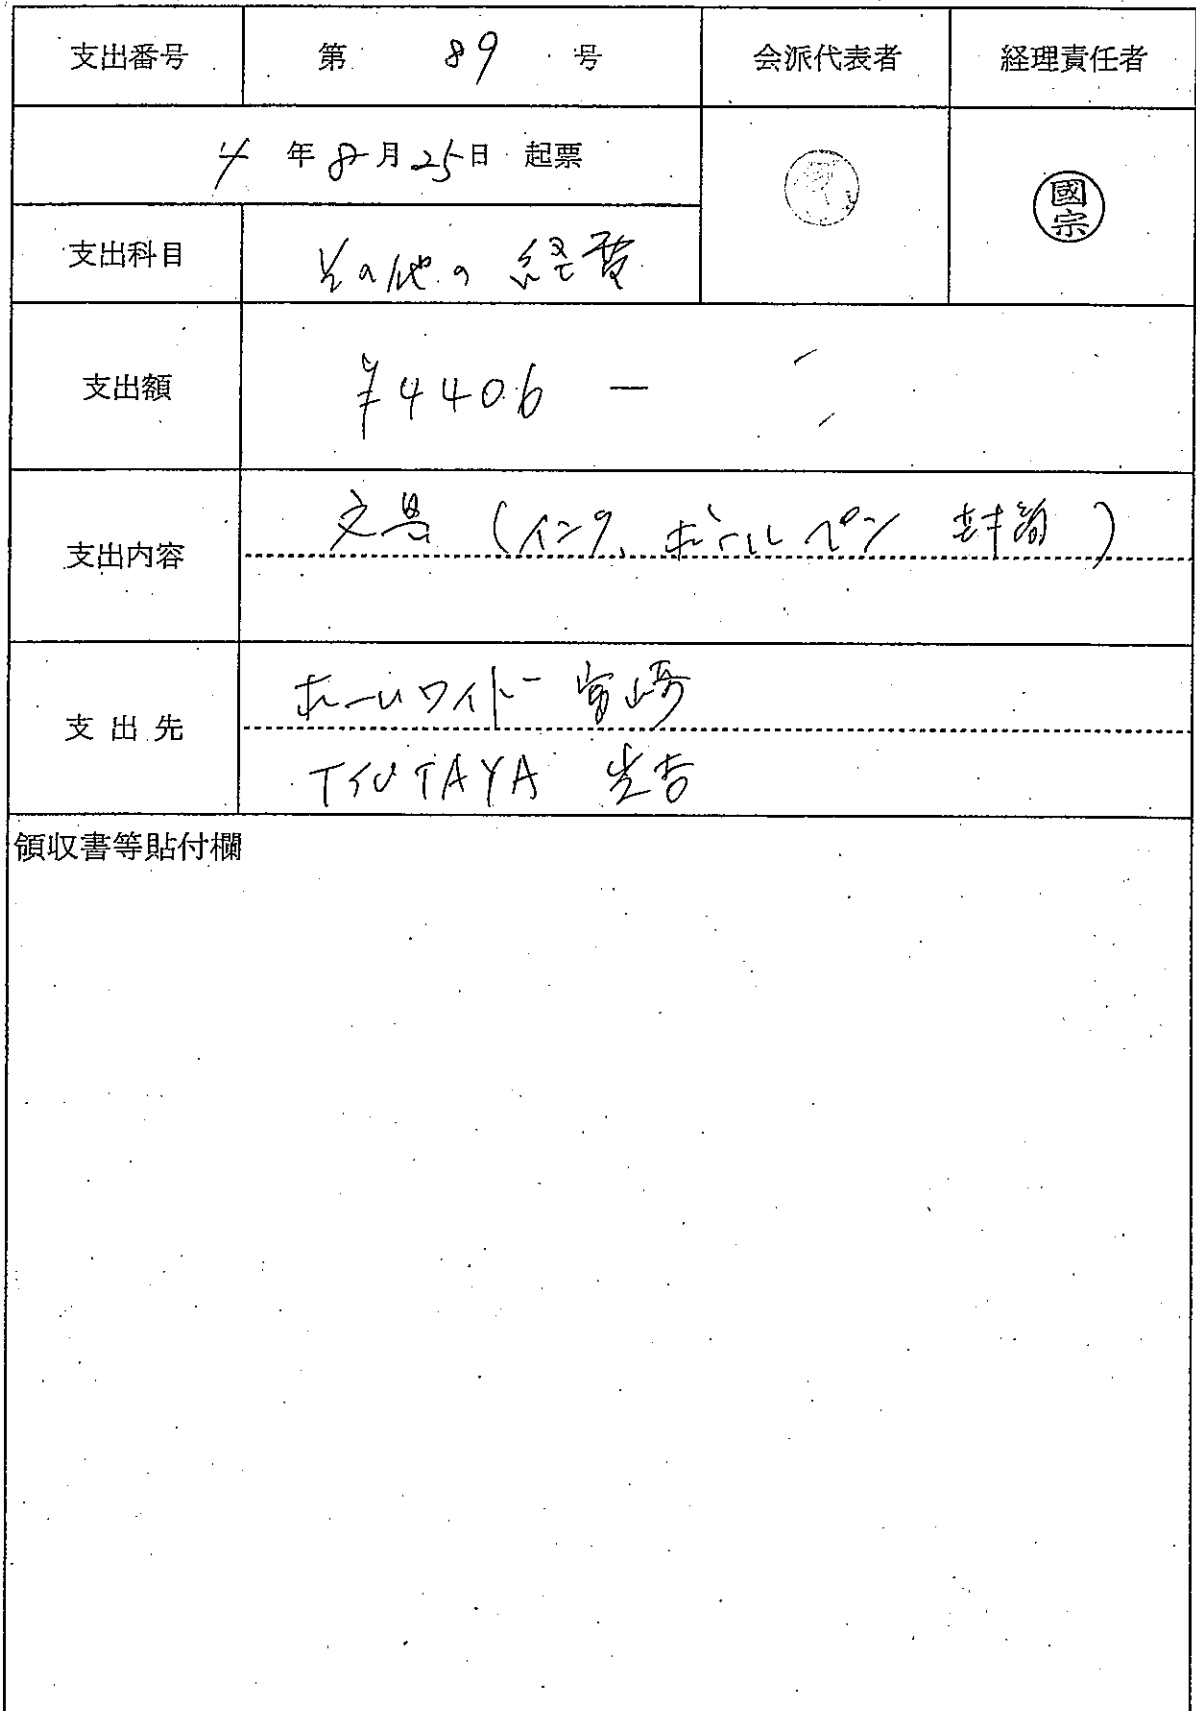 支出番号 第 89 号 会派代表者 経理責任者
4 年 8 月 25 日 起票
國宗
支出科目 その他の経費
支出額 ¥4406 ー
支出内容 文具 (インク、ボールペン 封筒)
支出先 ホームワイド 宮崎
TSUTAYA 光吉
領収書等貼付欄